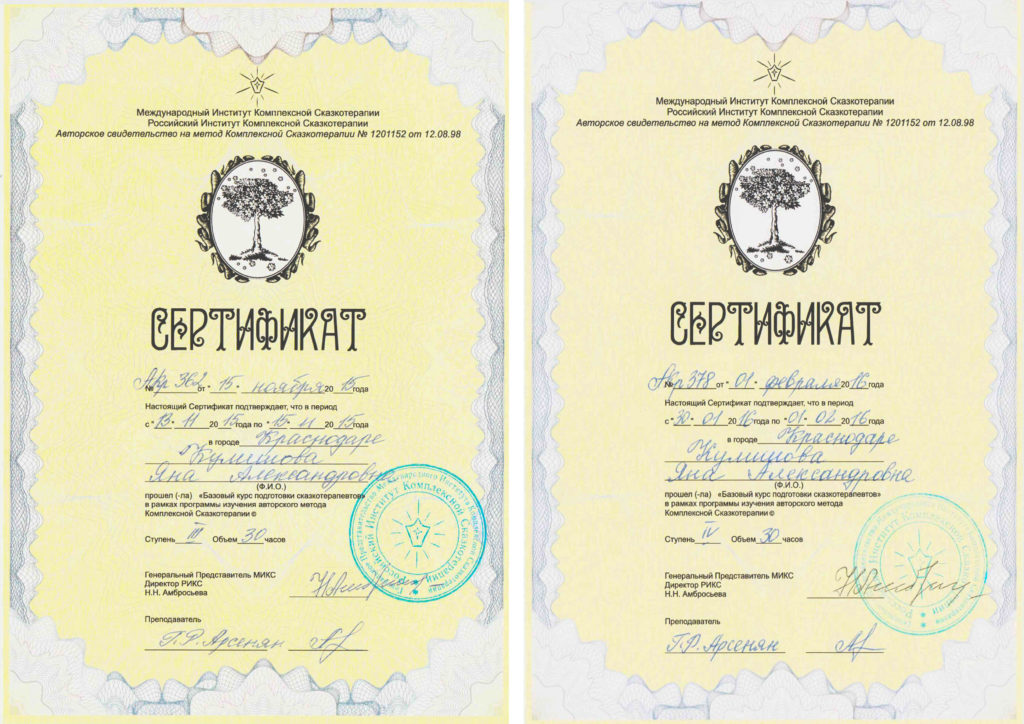 Международный Институт Комплексной Сказкотерапии
Российский Институт Комплексной Сказкотерапии
Авторское свидетельство на метод Комплексной Сказкотерапии № 1201152 от 12.08.98
СЕРТИФИКАТ
№ Акр 362 от "15" ноября 2015 года
Настоящий Сертификат подтверждает, что в период
с "13" 11 2015 года по "15" 11 2015 года
в городе Краснодаре
Кулишова
Яна Александровна
(Ф.И.О.)
прошел (-ла) «Базовый курс подготовки сказкотерапевтов»
в рамках программы изучения авторского метода
Комплексной Сказкотерапии ©
Ступень III Объем 30 часов
Генеральный Представитель МИКС
Директор РИКС
Н.Н. Амбросьева
Преподаватель
Г.Р. Арсенян
Российский Институт Комплексной Сказкотерапии
Международный Институт Комплексной Сказкотерапии
Российский Институт Комплексной Сказкотерапии
Авторское свидетельство на метод Комплексной Сказкотерапии № 1201152 от 12.08.98
СЕРТИФИКАТ
№ Акр 378 от "01" февраля 2016 года
Настоящий Сертификат подтверждает, что в период
с "30" 01 2016 года по "01" 02 2016 года
в городе Краснодаре
Кулишова
Яна Александровна
(Ф.И.О.)
прошел (-ла) «Базовый курс подготовки сказкотерапевтов»
в рамках программы изучения авторского метода
Комплексной Сказкотерапии ©
Ступень IV Объем 30 часов
Генеральный Представитель МИКС
Директор РИКС
Н.Н. Амбросьева
Преподаватель
Г.Р. Арсенян